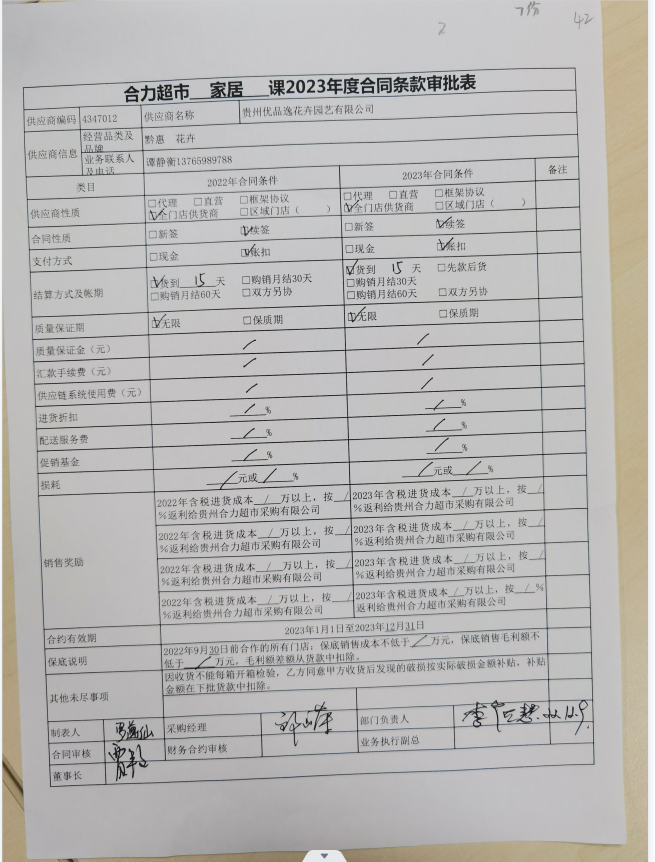 7份
42
2
合力超市 家居 课2023年度合同条款审批表
供应商编码 4347012 供应商名称 贵州优品逸花卉园艺有限公司
供应商信息 经营品类及品牌 黔惠 花卉
业务联系人及电话 谭静衡13765989788
类目 2022年合同条件 2023年合同条件 备注
供应商性质 □代理 □直营 □框架协议 □代理 □直营 □框架协议
☑全门店供货商 □区域门店（ ） ☑全门店供货商 □区域门店（ ）
合同性质 □新签 ☑续签 □新签 ☑续签
支付方式 □现金 ☑账扣 □现金 ☑账扣
结算方式及帐期 ☑货到 15 天 □购销月结30天 ☑货到 15 天 □先款后货
□购销月结30天
□购销月结60天 □双方另协 □购销月结60天 □双方另协
质量保证期 ☑无限 □保质期 ☑无限 □保质期
质量保证金（元） / /
汇款手续费（元） / /
供应链系统使用费（元） / /
进货折扣 / % / %
配送服务费 / % / %
促销基金 / % / %
损耗 / 元或 / % / 元或 / %
销售奖励
2022年含税进货成本 / 万以上，按 / %返利给贵州合力超市采购有限公司 2023年含税进货成本 / 万以上，按 / %返利给贵州合力超市采购有限公司
2022年含税进货成本 / 万以上，按 / %返利给贵州合力超市采购有限公司 2023年含税进货成本 / 万以上，按 / %返利给贵州合力超市采购有限公司
2022年含税进货成本 / 万以上，按 / %返利给贵州合力超市采购有限公司 2023年含税进货成本 / 万以上，按 / %返利给贵州合力超市采购有限公司
2022年含税进货成本 / 万以上，按 / %返利给贵州合力超市采购有限公司 2023年含税进货成本 / 万以上，按 / %返利给贵州合力超市采购有限公司
合约有效期 2023年1月1日至2023年12月31日
保底说明 2022年9月30日前合作的所有门店：保底销售成本不低于 / 万元，保底销售毛利额不
低于 / 万元，毛利额差额从货款中扣除。
其他未尽事项 因收货不能每箱开箱检验，乙方同意甲方收货后发现的破损按实际破损金额补贴，补贴
金额在下批货款中扣除。
制表人 采购经理 部门负责人
合同审核 财务合约审核 业务执行副总
董事长